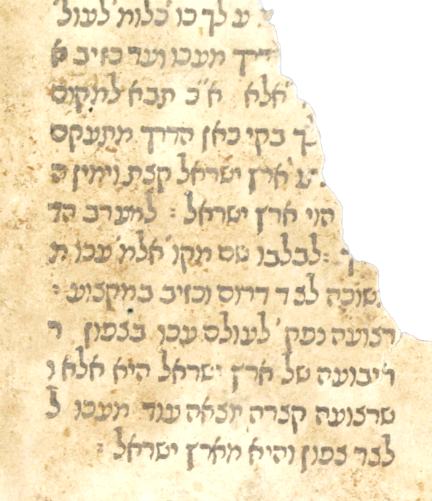 ע לך כו' כלות' לעול'
דרך מעכו ועד כזיב א
אלא א"כ תבא למקום
ך בקי כאן הדרך מתעקם
ע' ארץ ישראל קצת וימין ה
הוי ארץ ישראל : למערב הד
ך : לבלבו שם מקו' אלמ' עכו ת
שוכה לצד דרום וכזיב במקצוע :
רצועה נפק' לעולם עכו בצפון ר
ריבועה של ארץ ישראל היא אלא ו
שרצועה קצרה יוצאה עוד מעכו ל
לצד צפון והיא מארץ ישראל :